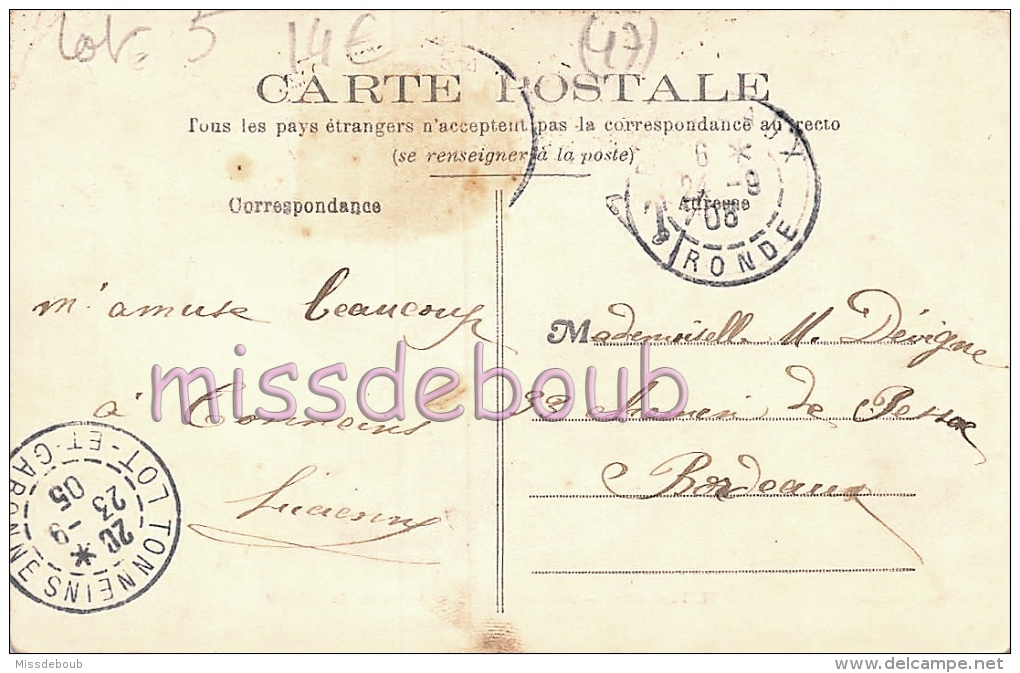 Lot. 5 14€ (47)
CARTE POSTALE
Tous les pays étrangers n'acceptent pas la correspondance au recto
(se renseigner à la poste)
6 *
24 -9
08
GIRONDE
Correspondance
Adresse
m'amuse beaucoup
à Tonneins
Lucienne
Mademoiselle M. Dévigne
33 Chemin de Pessac
Bordeaux
missdeboub
TONNEINS
LOT-ET-GARONNE
20 *
23 -9
05
Missdeboub
www.delcampe.net